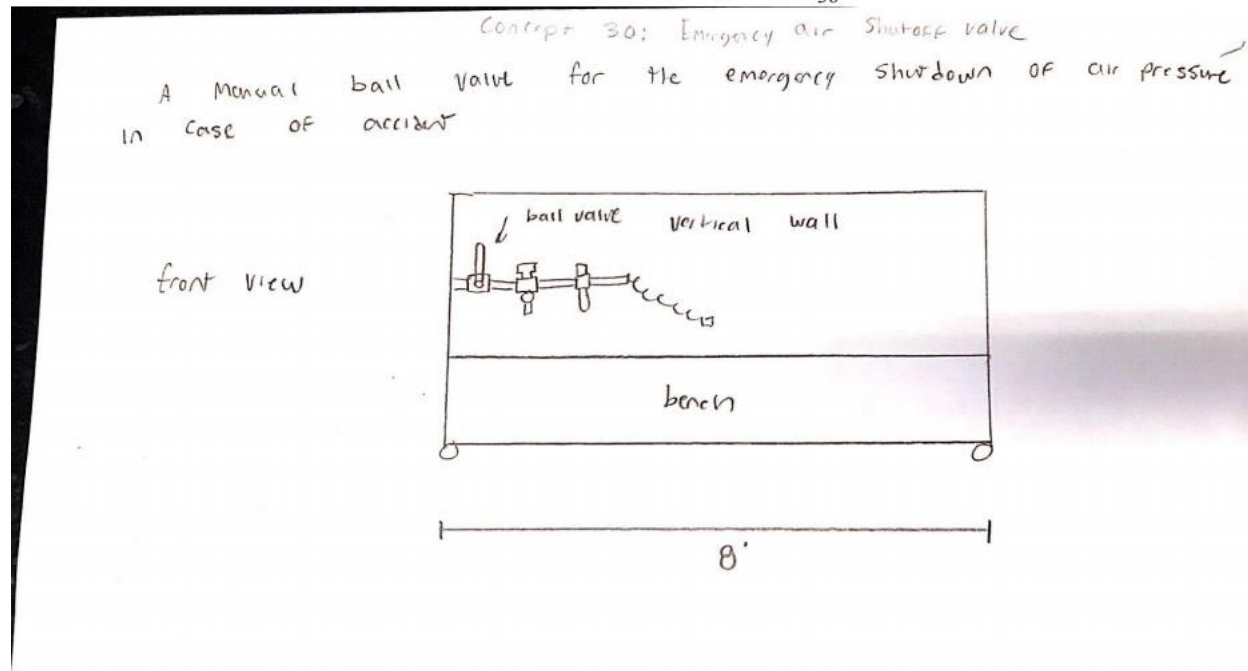 Concept 30: Emergency air Shutoff valve
A Manual ball valve for the emergency shutdown of air pressure
in case of accident
ball valve vertical wall
front view
bench
8'